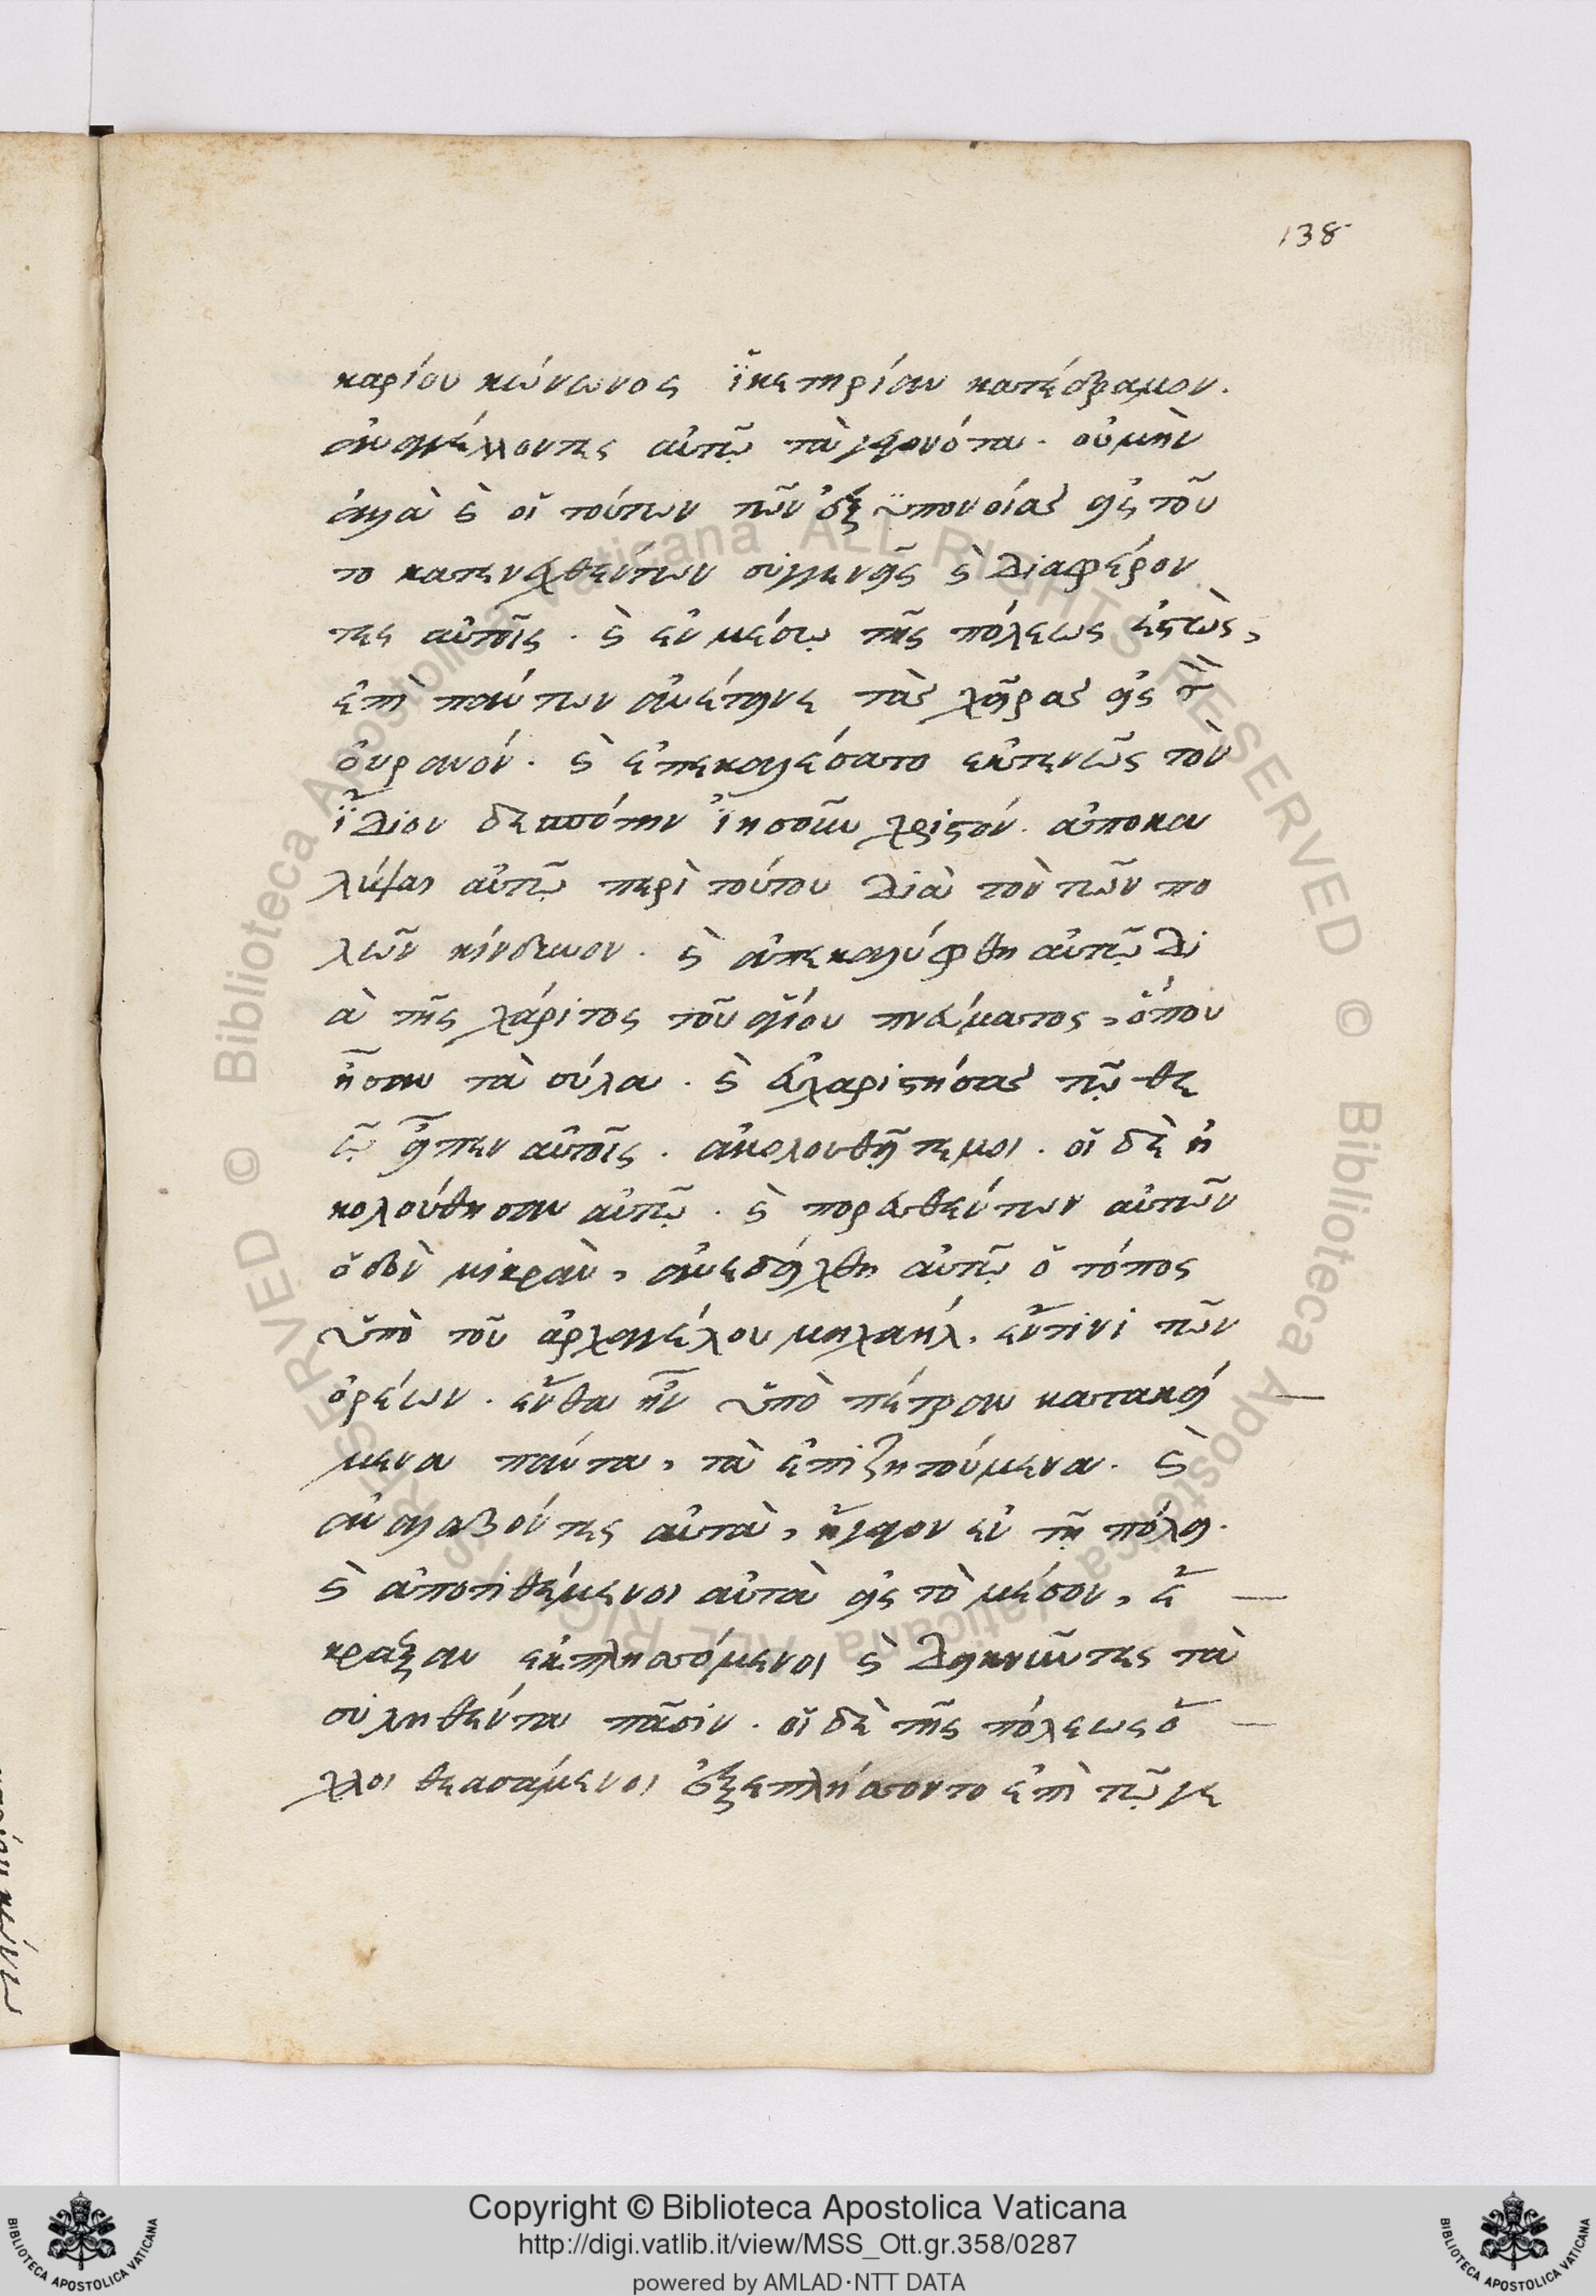 138
καρίου κώνωνος ἱ̈κετηρίαν κατέδραμον.
ἀναγγέλλοντες αὐτῷ τὰ γεγονότα. οὐμὴν
ἀλλὰ ϗ οἱ τούτων τῶν ἐξ ϋπονοίας εἰς τοῦ
το κατενεχθέντων συγγενεῖς ϗ διαφέρον
τες αὐτοῖς. ϗ ἐν μέσῳ τῆς πόλεως ἑστὼς,
ἐπὶ πάντων ἀνέτεινε τὰς χεῖρας εἰς τὸν
οὐρανόν. ϗ ἐπεκαλέσατο εὐτενῶς τὸν
ἴ̈διον δεσπότην ἰ̈ησοῦν χριστόν. ἀποκα
λύψαι αὐτῷ περὶ τούτου διὰ τὸν τῶν πο
λλῶν κίνδυνον. ϗ ἀπεκαλύφθη αὐτῷ δι
ὰ τῆς χάριτος τοῦ ἁγίου πνεύματος, ὅπου
ἦσαν τὰ σύλα. ϗ εὐχαριστήσας τῷ θε
ῷ εἶπεν αὐτοῖς. ἀκολουθεῖτεμοι. οἱ δὲ ἠ
κολούθησαν αὐτῷ. ϗ πορευθέντων αὐτῶν
ὁδὸν μικρὰν, ἀνεδείχθη αὐτῷ ὁ τόπος
ὑπὸ τοῦ ἀρχαγγέλου μιχαήλ. ἔντινι τῶν
ὀρέων. ἔνθα ἦν ὑπὸ πέτραν κατακεί
μενα πάντα, τὰ ἐπιζητούμενα. ϗ
ἀναλαβόντες αὐτὰ, ἤγαγον ἐν τῇ πόλει.
ϗ ἀποτιθέμενοι αὐτὰ εἰς τὸ μέσον, ἔ
κραξαν ἐκπλησσόμενοι ϗ δεικνῦντες τὰ
συληθέντα πᾶσιν. οἱ δὲ τῆς πόλεως ὄ
χλοι θεασάμενοι ἐξεπλήσσοντο ἐπὶ τῷ γε
Copyright © Biblioteca Apostolica Vaticana
http://digi.vatlib.it/view/MSS_Ott.gr.358/0287
powered by AMLAD·NTT DATA
BIBLIOTECA APOSTOLICA VATICANA
BIBLIOTECA APOSTOLICA VATICANA